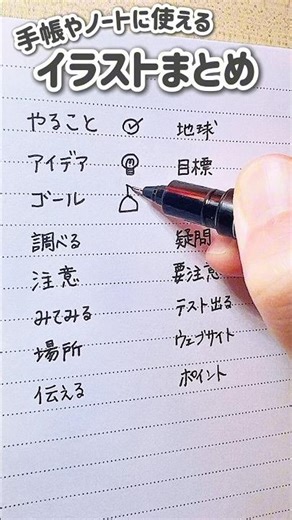 手帳やノートに使える
イラストまとめ
やること
地球
アイデア
目標
ゴール
調べる
疑問
注意
要注意
みてみる
テスト出る
場所
ウェブサイト
伝える
ポイント